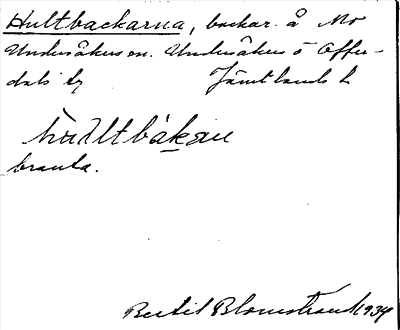 Hultbackarna, backar. å Mo
Undersåkers sn. Undersåkers o Offer-
dals tg Jämtlands l.
hultbàkan
branta.
Bertil Blomstrand 1934